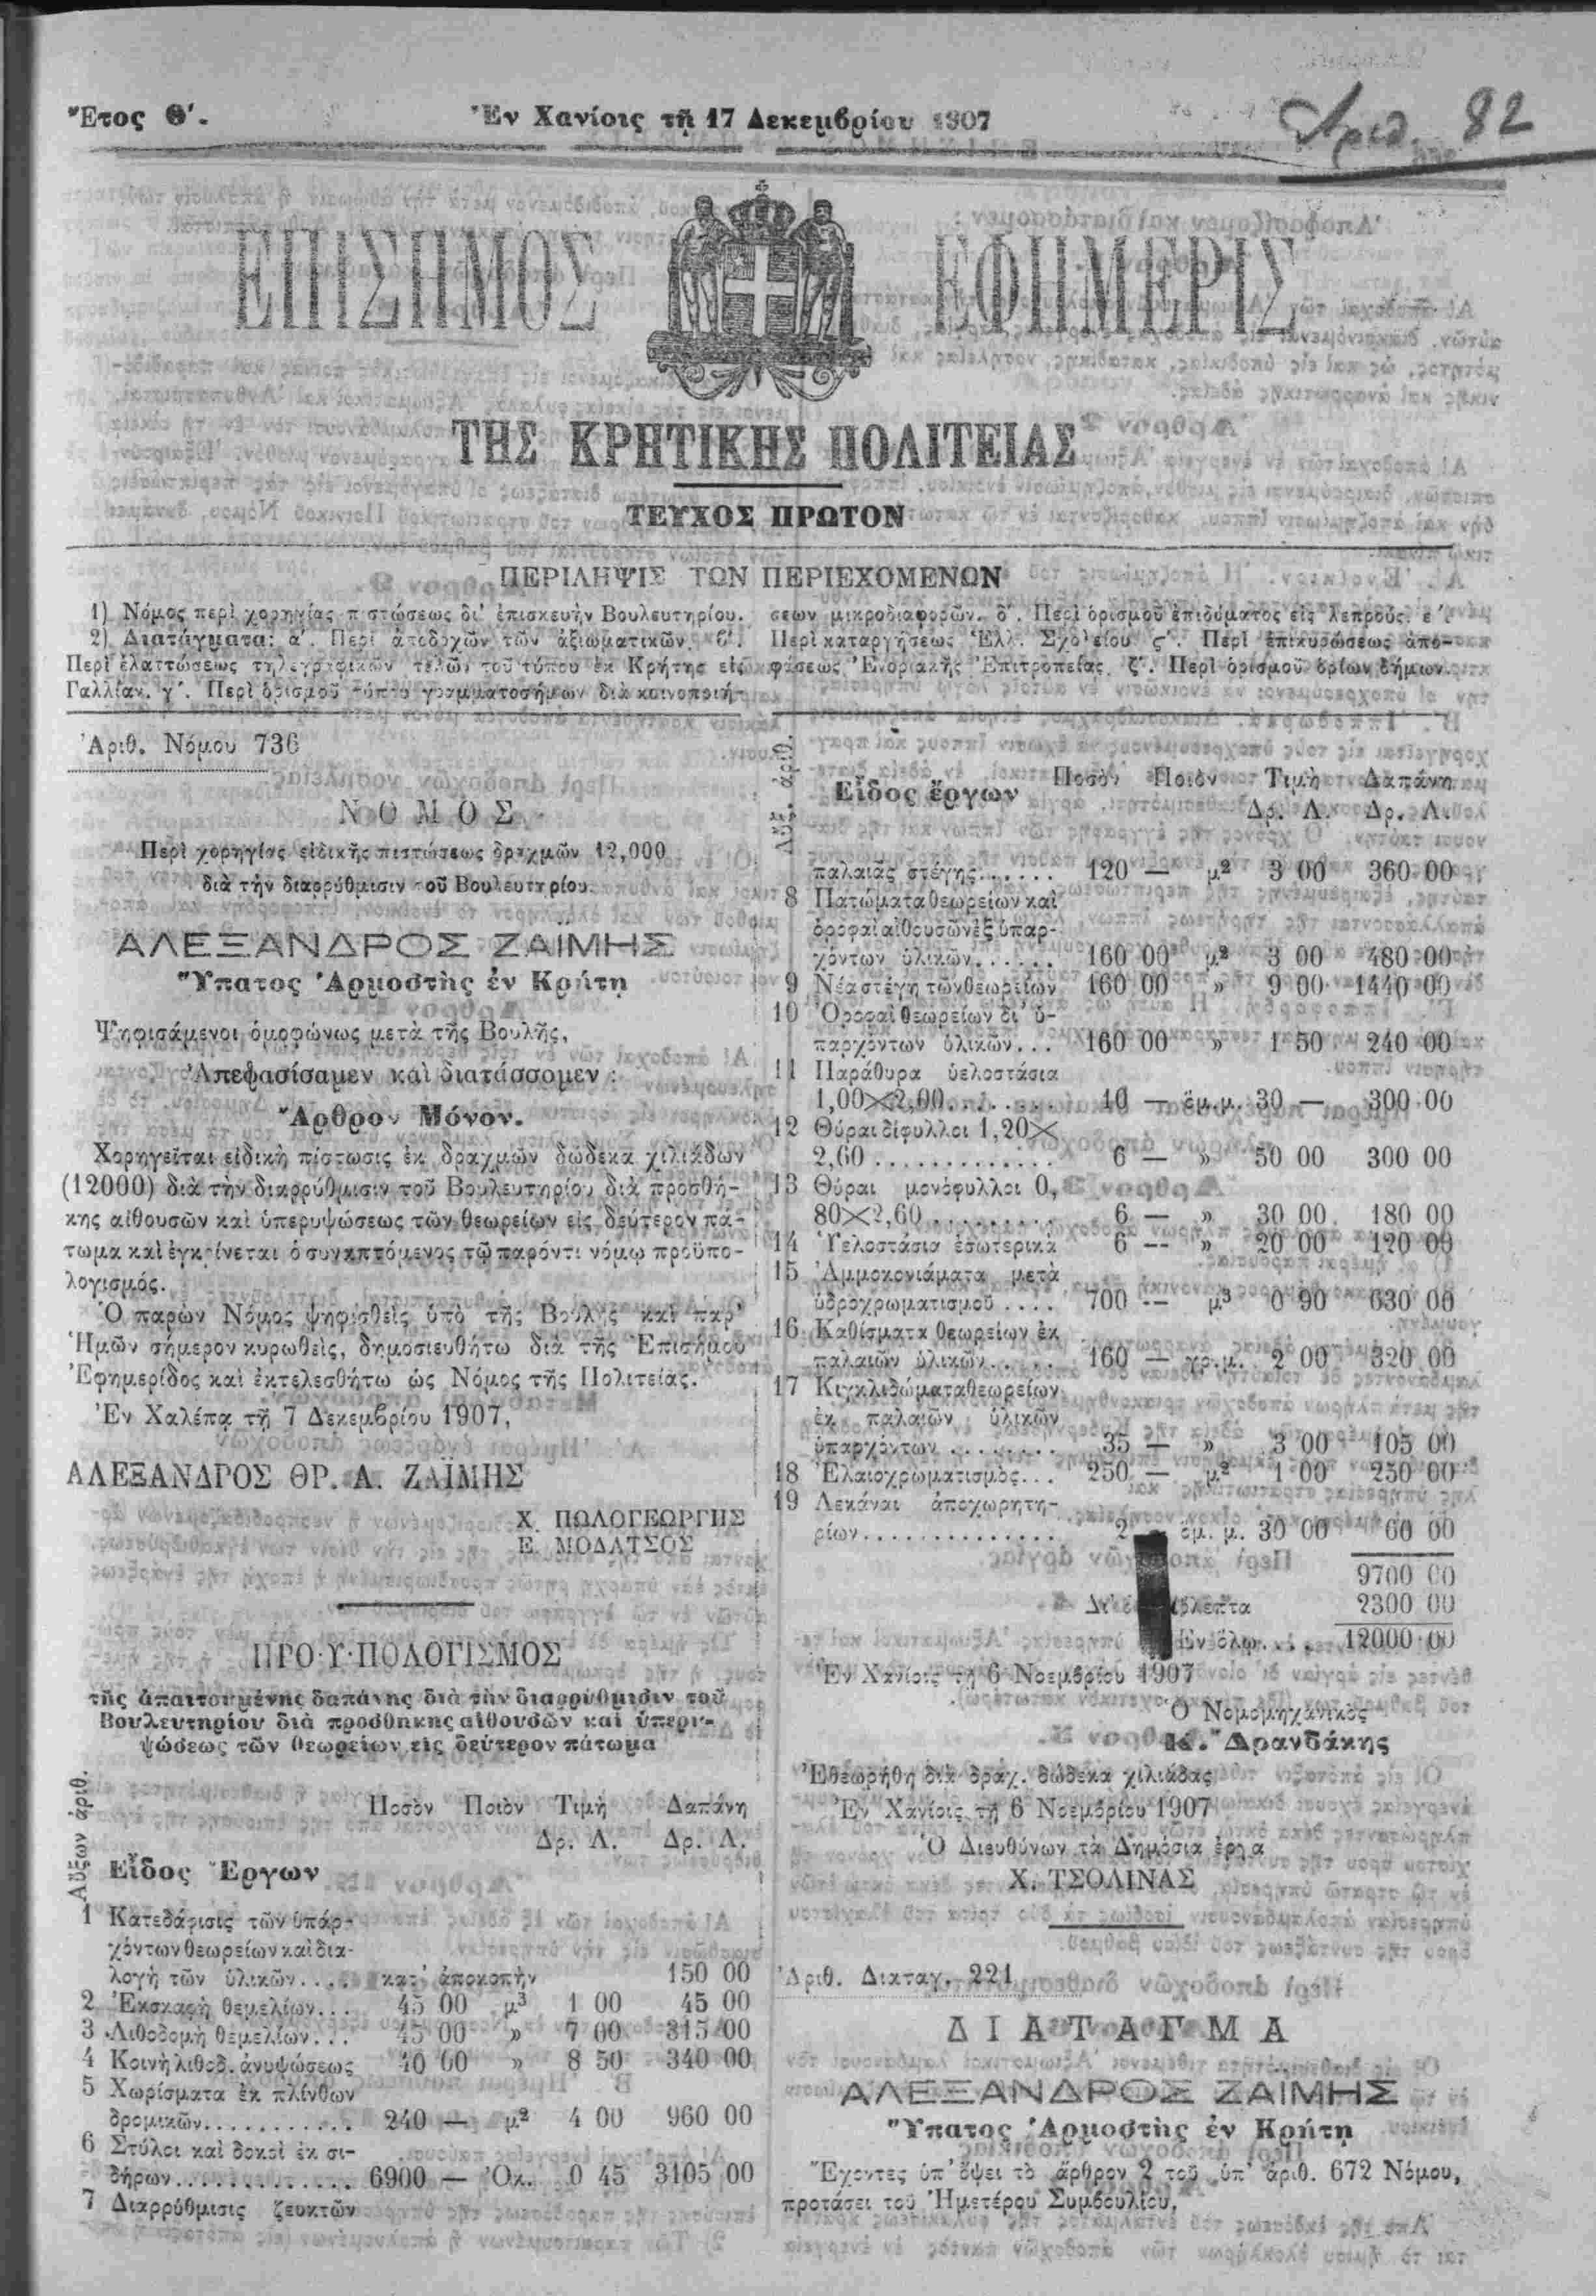 Ἔτος Θ'.
Ἐν Χανίοις τῇ 17 Δεκεμβρίου 1907
Ἀριθ. 82
ΕΠΙΣΗΜΟΣ ΕΦΗΜΕΡΙΣ
ΤΗΣ ΚΡΗΤΙΚΗΣ ΠΟΛΙΤΕΙΑΣ
ΤΕΥΧΟΣ ΠΡΩΤΟΝ
ΠΕΡΙΛΗΨΙΣ ΤΩΝ ΠΕΡΙΕΧΟΜΕΝΩΝ
1) Νόμος περὶ χορηγίας πιστώσεως δι' ἐπισκευὴν Βουλευτηρίου.
2) Διατάγματα: α'. Περὶ ἀποδοχῶν τῶν ἀξιωματικῶν. β'.
Περὶ ἐλαττώσεως τηλεγραφικῶν τελῶν τοῦ τύπου ἐκ Κρήτης εἰς
Γαλλίαν. γ'. Περὶ ὁρισμοῦ τύπου γραμματοσήμων διὰ κοινοποιή-
σεων μικροδιαφορῶν. δ'. Περὶ ὁρισμοῦ ἐπιδόματος εἰς λεπρούς. ε'.
Περὶ καταργήσεως Ἑλλ. Σχολείου ς'. Περὶ ἐπικυρώσεως ἀπο-
φάσεως Ἐνοριακῆς Ἐπιτροπείας. ζ'. Περὶ ὁρισμοῦ ὁρίων δήμων.
Ἀριθ. Νόμου 736
ΝΟΜΟΣ
Περὶ χορηγίας εἰδικῆς πιστώσεως δραχμῶν 12,000
διὰ τὴν διαρρύθμισιν τοῦ Βουλευτηρίου.
ΑΛΕΞΑΝΔΡΟΣ ΖΑΪΜΗΣ
Ὕπατος Ἁρμοστὴς ἐν Κρήτῃ
Ψηφισάμενοι ὁμοφώνως μετὰ τῆς Βουλῆς,
Ἀπεφασίσαμεν καὶ διατάσσομεν :
Ἄρθρον Μόνον.
Χορηγεῖται εἰδικὴ πίστωσις ἐκ δραχμῶν δώδεκα χιλιάδων
(12000) διὰ τὴν διαρρύθμισιν τοῦ Βουλευτηρίου διὰ προσθή-
κης αἰθουσῶν καὶ ὑπερυψώσεως τῶν θεωρείων εἰς δεύτερον πά-
τωμα καὶ ἐγκρίνεται ὁ συναπτόμενος τῷ παρόντι νόμῳ προϋπο-
λογισμός.
Ὁ παρὼν Νόμος ψηφισθεὶς ὑπὸ τῆς Βουλῆς καὶ παρ'
Ἡμῶν σήμερον κυρωθεὶς, δημοσιευθήτω διὰ τῆς Ἐπισήμου
Ἐφημερίδος καὶ ἐκτελεσθήτω ὡς Νόμος τῆς Πολιτείας.
Ἐν Χαλέπᾳ τῇ 7 Δεκεμβρίου 1907,
ΑΛΕΞΑΝΔΡΟΣ ΘΡ. Α. ΖΑΪΜΗΣ
Χ. ΠΩΛΟΓΕΩΡΓΗΣ
Ε. ΜΟΔΑΤΣΟΣ
ΠΡΟ·Υ·ΠΟΛΟΓΙΣΜΟΣ
τῆς ἀπαιτουμένης δαπάνης διὰ τὴν διαρρύθμισιν τοῦ
Βουλευτηρίου διὰ προσθήκης αἰθουσῶν καὶ ὑπερυ-
ψώσεως τῶν θεωρείων εἰς δεύτερον πάτωμα
Αὔξων ἀριθ.
Ποσὸν Ποιὸν Τιμὴ Δαπάνη
Δρ. Λ. Δρ. Λ.
Εἶδος Ἔργων
1 Κατεδάφισις τῶν ὑπάρ-
χόντων θεωρείων καὶ δια-
λογὴ τῶν ὑλικῶν.... κατ' ἀποκοπὴν 150 00
2 Ἐκσκαφὴ θεμελίων... 45 00 μ3 1 00 45 00
3 Λιθοδομὴ θεμελίων... 45 00 » 7 00 315 00
4 Κοινὴ λιθοδ. ἀνυψώσεως 40 00 » 8 50 340 00
5 Χωρίσματα ἐκ πλίνθων
δρομικῶν........... 240 — μ2 4 00 960 00
6 Στῦλοι καὶ δοκοὶ ἐκ σι-
δήρων............. 6900 — Ὀκ. 0 45 3105 00
7 Διαρρύθμισις ζευκτῶν
Αὔξ. ἀριθ.
Εἶδος ἔργων Ποσὸν Ποιὸν Τιμὴ Δαπάνη
Δρ. Λ. Δρ. Λ.
παλαιᾶς στέγης...... 120 — μ2 3 00 360 00
8 Πατώματα θεωρείων καὶ
ὀροφαὶ αἰθουσῶν ἐξ ὑπαρ-
χόντων ὑλικῶν...... 160 00 μ2 3 00 480 00
9 Νέα στέγη τῶν θεωρείων 160 00 » 9 00 1440 00
10 Ὀροφαὶ θεωρείων δι' ὑ-
παρχόντων ὑλικῶν... 160 00 » 1 50 240 00
11 Παράθυρα ὑελοστάσια
1,00×2,00........ 10 — ἐμ.μ. 30 — 300 00
12 Θύραι δίφυλλοι 1,20×
2,60 ............. 6 — » 50 00 300 00
13 Θύραι μονόφυλλοι 0,
80×2,60......... 6 — » 30 00 180 00
14 Ὑελοστάσια ἐσωτερικὰ 6 — » 20 00 120 00
15 Ἀμμοκονιάματα μετὰ
ὑδροχρωματισμοῦ .... 700 — μ3 0 90 630 00
16 Καθίσματα θεωρείων ἐκ
παλαιῶν ὑλικῶν...... 160 — χρ.μ. 2 00 320 00
17 Κιγκλιδώματα θεωρείων
ἐκ παλαιῶν ὑλικῶν
ὑπαρχόντων ........ 35 — » 3 00 105 00
18 Ἐλαιοχρωματισμὸς... 250 — μ2 1 00 250 00
19 Λεκάναι ἀποχωρητη-
ρίων.............. 2 ἐμ. μ. 30 00 60 00
9700 00
2300 00
Ἐν ὅλῳ.... 12000 00
Ἐν Χανίοις τῇ 6 Νοεμβρίου 1907
Ὁ Νομομηχανικὸς
Κ. Δρανδάκης
Ἐθεωρήθη διὰ δραχ. δώδεκα χιλιάδας
Ἐν Χανίοις τῇ 6 Νοεμβρίου 1907
Ὁ Διευθύνων τὰ Δημόσια ἔργα
Χ. ΤΣΟΛΙΝΑΣ
Ἀριθ. Διαταγ. 221
ΔΙΑΤΑΓΜΑ
ΑΛΕΞΑΝΔΡΟΣ ΖΑΪΜΗΣ
Ὕπατος Ἁρμοστὴς ἐν Κρήτῃ
Ἔχοντες ὑπ' ὄψει τὸ ἄρθρον 2 τοῦ ὑπ' ἀριθ. 672 Νόμου,
προτάσει τοῦ Ἡμετέρου Συμβουλίου,